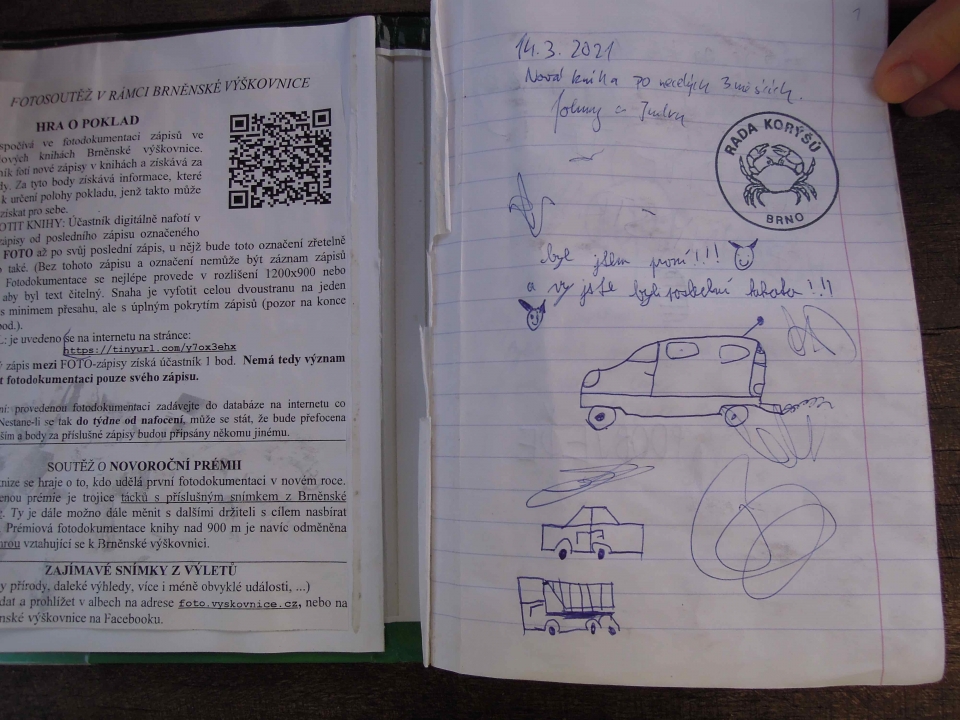 FOTOSOUTĚŽ V RÁMCI BRNĚNSKÉ VÝŠKOVNICE
HRA O POKLAD
spočívá ve fotodokumentaci zápisů ve
ových knihách Brněnské výškovnice.
ník fotí nové zápisy v knihách a získává za
dy. Za tyto body získává informace, které
k určení polohy pokladu, jenž takto může
získat pro sebe.
OTIT KNIHY: Účastník digitálně nafotí v
zápisy od posledního zápisu označeného
FOTO až po svůj poslední zápis, u nějž bude toto označení zřetelně
také. (Bez tohoto zápisu a označení nemůže být záznam zápisů
Fotodokumentace se nejlépe provede v rozlišení 1200x900 nebo
aby byl text čitelný. Snaha je vyfotit celou dvoustranu na jeden
s minimem přesahu, ale s úplným pokrytím zápisů (pozor na konce
bod.).
L: je uvedeno se na internetu na stránce:
https://tinyurl.com/y7ox3ehx
zápis mezi FOTO-zápisy získá účastník 1 bod. Nemá tedy význam
t fotodokumentaci pouze svého zápisu.
ní: provedenou fotodokumentaci zadávejte do databáze na internetu co
Nestane-li se tak do týdne od nafocení, může se stát, že bude přefocena
ším a body za příslušné zápisy budou připsány někomu jinému.
SOUTĚŽ O NOVOROČNÍ PRÉMII
nize se hraje o to, kdo udělá první fotodokumentaci v novém roce.
enou prémie je trojice tácků s příslušným snímkem z Brněnské
. Ty je dále možno dále měnit s dalšími držiteli s cílem nasbírat
Prémiová fotodokumentace knihy nad 900 m je navíc odměněna
hrou vztahující se k Brněnské výškovnici.
ZAJÍMAVÉ SNÍMKY Z VÝLETŮ
y přírody, daleké výhledy, více i méně obvyklé události, ...)
dat a prohlížet v albech na adrese foto.vyskovnice.cz, nebo na
enské výškovnice na Facebooku.
1
14.3.2021
Nová kniha po necelých 3 měsících.
RADA KORÝŠŮ
BRNO
byl jsem první!!!
a vy jste byli poslední hahaha!!!